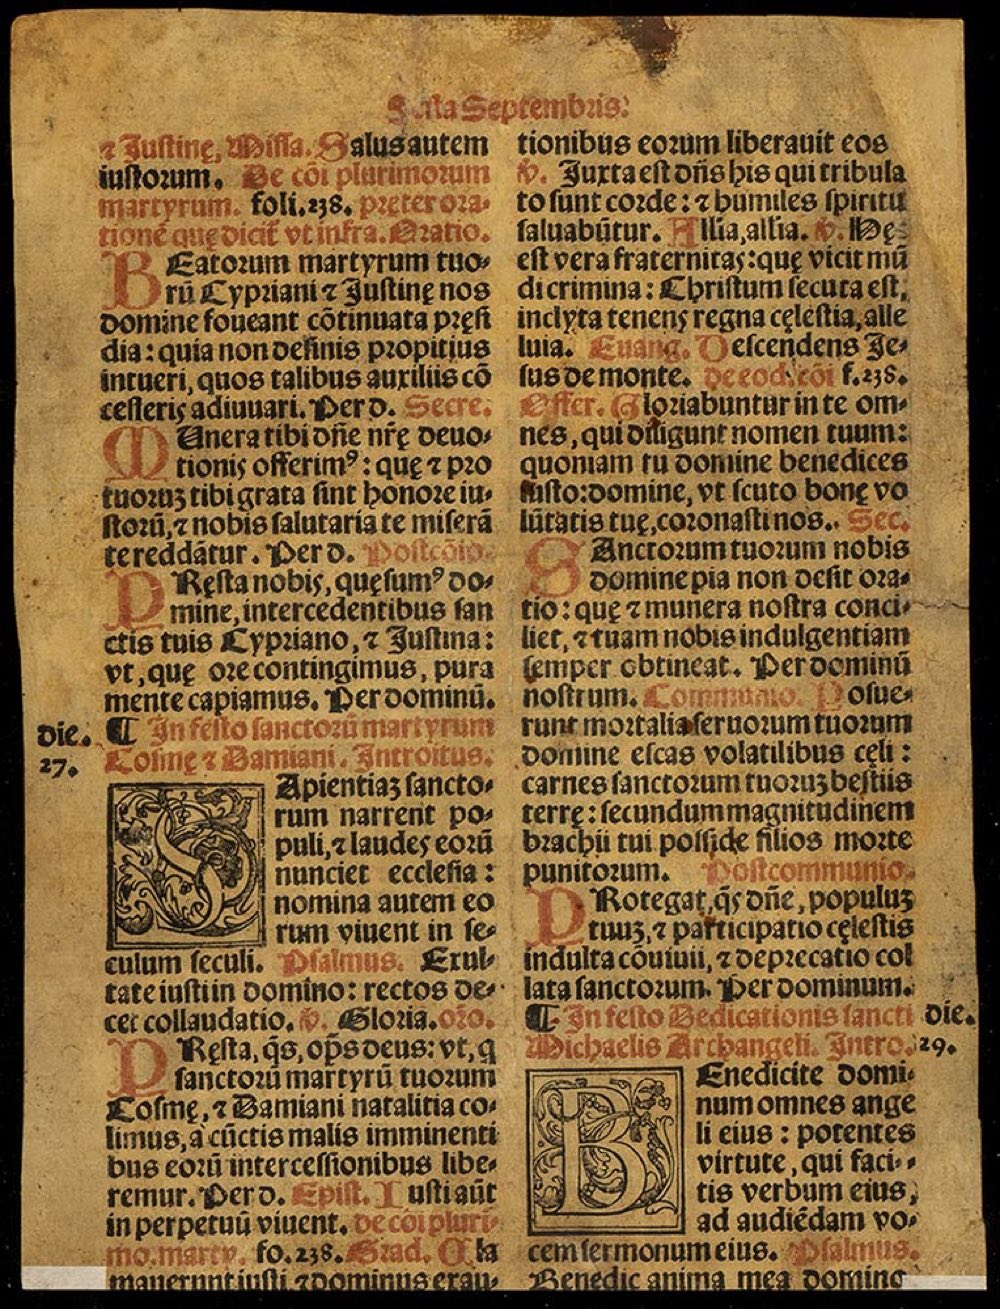 Festa Septembris.
⁊ Iustinę, Missa. Salus autem
iustorum. De cōi plurimorum
martyrum. foli.238. pręter ora-
tionē quę dicit̃ vt infra. Oratio.
BEatorum martyrum tuo-
rū Cypriani ⁊ Iustinę nos
domine foueant cōtinuata pręsi
dia: quia non desinis propitius
intueri, quos talibus auxiliis cō
cesseris adiuuari. Per d. Secre.
MUnera tibi dn̄e nr̄ę deuo-
tionis offerimꝰ: quę ⁊ pro
tuoruꝫ tibi grata sint honore iu-
storū, ⁊ nobis salutaria te miserā
te reddātur. Per d. Postcōio.
PRęsta nobis, quęsumꝰ do-
mine, intercedentibus san
ctis tuis Cypriano, ⁊ Iustina:
vt, quę ore contingimus, pura
mente capiamus. Per dominū.
die. ¶ In festo sanctorū martyrum
27. Cosmę ⁊ Damiani. Introitus.
SApientiaꝫ sancto-
rum narrent po-
puli, ⁊ laudes eorū
nunciet ecclesia:
nomina autem eo
rum viuent in se-
culum seculi. Psalmus. Exul-
tate iusti in domino: rectos de-
cet collaudatio. ℣. Gloria. oro.
PRęsta, q̄s, op̄s deus: vt, q
sanctorū martyrū tuorum
Cosmę, ⁊ Damiani natalitia co-
limus, a cūctis malis imminenti
bus eorū intercessionibus libe-
remur. Per d. Epist. Iusti aūt
in perpetuū viuent. de cōi pluri-
mo. marty. fo.238. Grad. Cla
mauerunt iusti ⁊ dominus exau-
tionibus eorum liberauit eos
℣. Juxta est dn̄s his qui tribula
to sunt corde: ⁊ humiles spiritu
saluabūtur. Allia, allia. ℣. Hęc
est vera fraternitas: quę vicit mū
di crimina: Christum secuta est,
inclyta tenens regna cęlestia, alle
luia. Euang. Descendens Ie-
sus de monte. de eod. cōi f.238.
Offer. Gloriabuntur in te om-
nes, qui diligunt nomen tuum:
quoniam tu domine benedices
iusto: domine, vt scuto bonę vo
lūtatis tuę, coronasti nos. Sec.
SAnctorum tuorum nobis
domine pia non desit ora-
tio: quę ⁊ munera nostra conci-
liet, ⁊ tuam nobis indulgentiam
semper obtineat. Per dominū
nostrum. Communio. Posue-
runt mortalia seruorum tuorum
domine escas volatilibus cęli:
carnes sanctorum tuoruꝫ bestiis
terrę: secundum magnitudinem
brachij tui posside filios morte
punitorum. Postcommunio.
PRotegat, q̄s dn̄e, populuꝫ
tuuꝫ, ⁊ participatio cęlestis
indulta cōuiuii, ⁊ deprecatio col
lata sanctorum. Per dominum.
¶ In festo Dedicationis sancti die.
Michaelis Archangeli. Intro. 29.
BEnedicite domi-
num omnes ange
li eius: potentes
virtute, qui faci-
tis verbum eius,
ad audiēdam vo-
cem sermonum eius. Psalmus.
Benedic anima mea domino